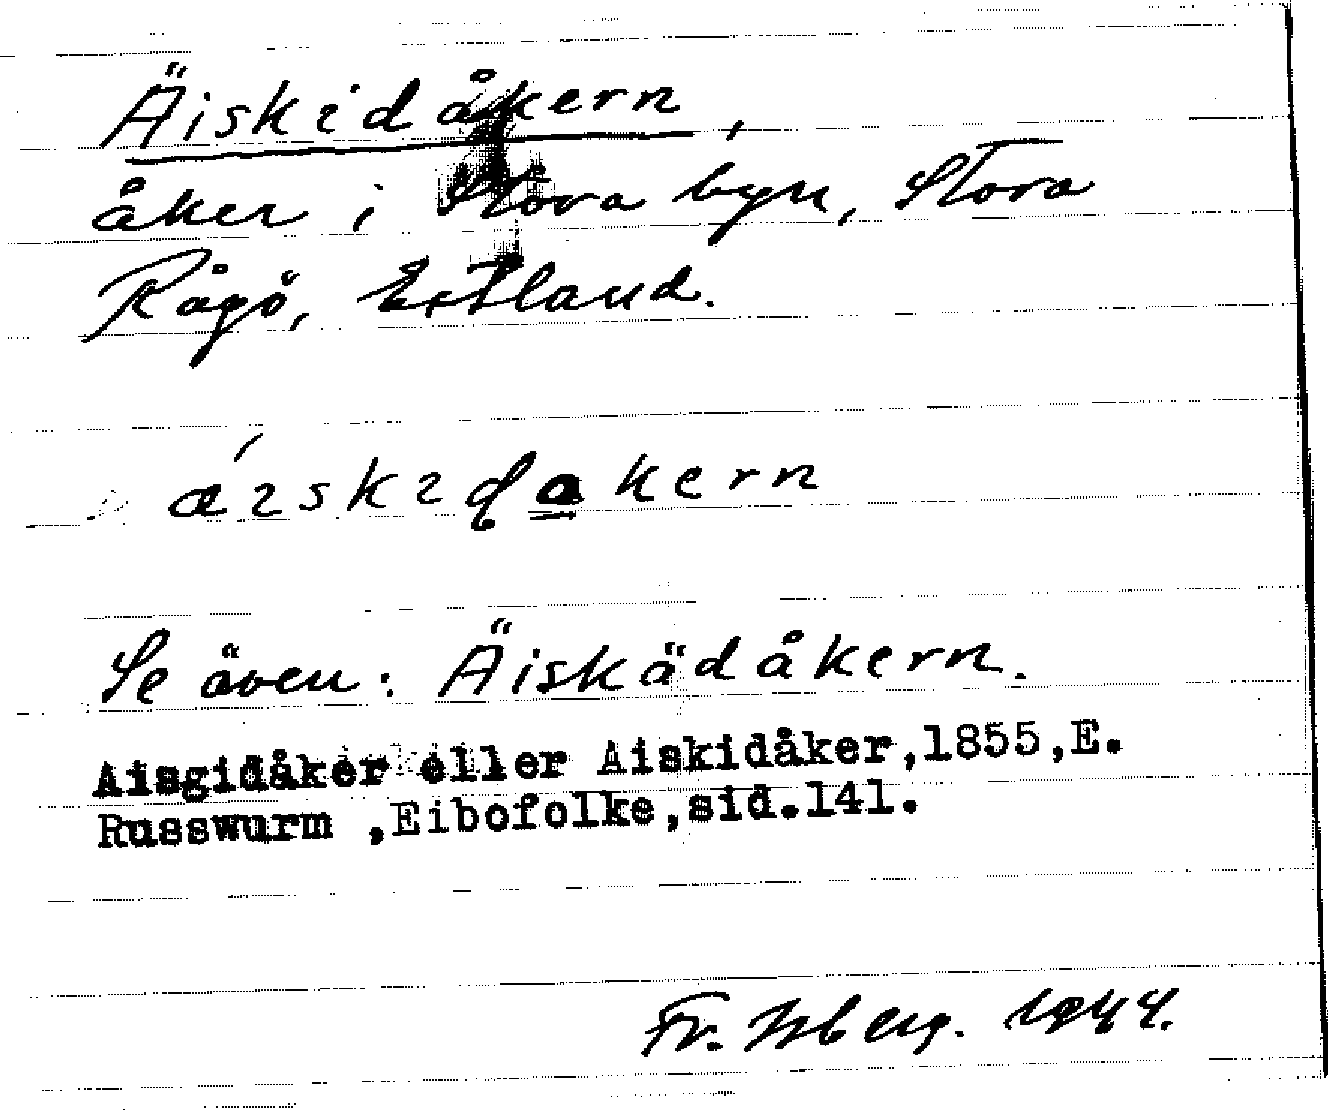 Äiskidåkern,
åker i Stora byn, Stora
Rågö, Estland.
Se även: Äiskädåkern.
Aisgidåker eller Aiskidåker,1855,E.
Russwurm ,Eibofolke,sid.141.
Fr. 1944.